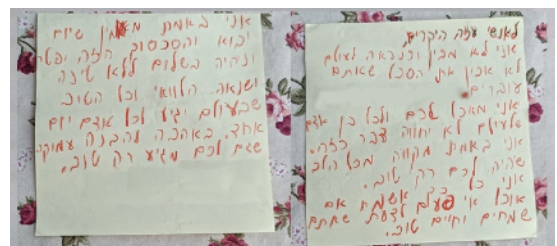 לאנשי עזה היקרים,
אני לא מבין וכנראה לעולם
לא אבין את הסבל שאתם
עוברים.
אני מאחל לכם ולכל בן אדם
שלעולם לא יחווה דבר כזה.
אני באמת מקווה מכל הלב
שיהיה לכם רק טוב.
אני כל כך אשמח אם
אוכל אי פעם לדעת שאתם
שמחים וחיים טוב.
אני באמת מאמין שיום
יבוא והסכסוך הזה יפתר
ונחיה בשלום ללא טינה
ושנאה. הלוואי וכל הטוב
שבעולם יגיע לכל אדם יום
אחד. באהבה והבנה עמוקה
שגם לכם מגיע רק טוב.